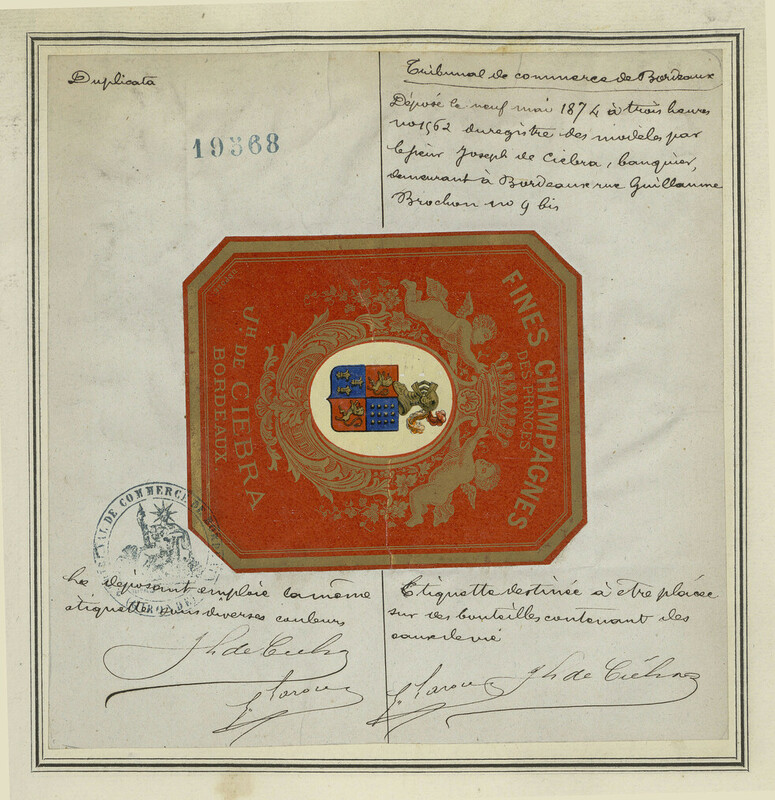 Duplicata
19368
Tribunal de commerce de Bordeaux
Déposé le neuf mai 1874 à trois heures
no 1562 du registre des modèles par
le sieur Joseph de Ciebra, banquier,
demeurant à Bordeaux rue Guillaume
Brochon no 9 bis
FINES CHAMPAGNES
DES PRINCES
JH. DE CIEBRA
BORDEAUX
DÉPOSÉ
TRIBUNAL DE COMMERCE DE
Le déposant emploie la même
étiquette sous diverses couleurs
Jh de Ciebra
Etiquette destinée à être placée
sur des bouteilles contenant des
eaux de vie
Jh de Ciebra